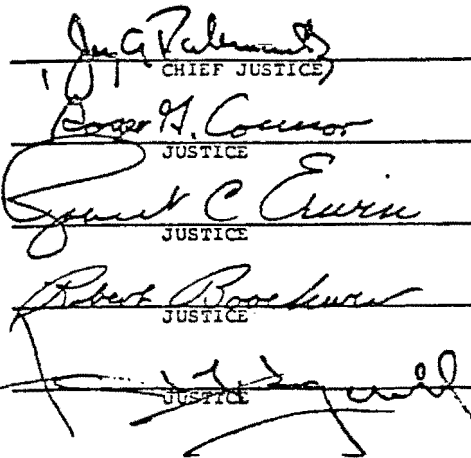 Jay A. Rabinowitz
CHIEF JUSTICE
Roger G. Connor
JUSTICE
Robert C Erwin
JUSTICE
Robert Boochever
JUSTICE
JUSTICE